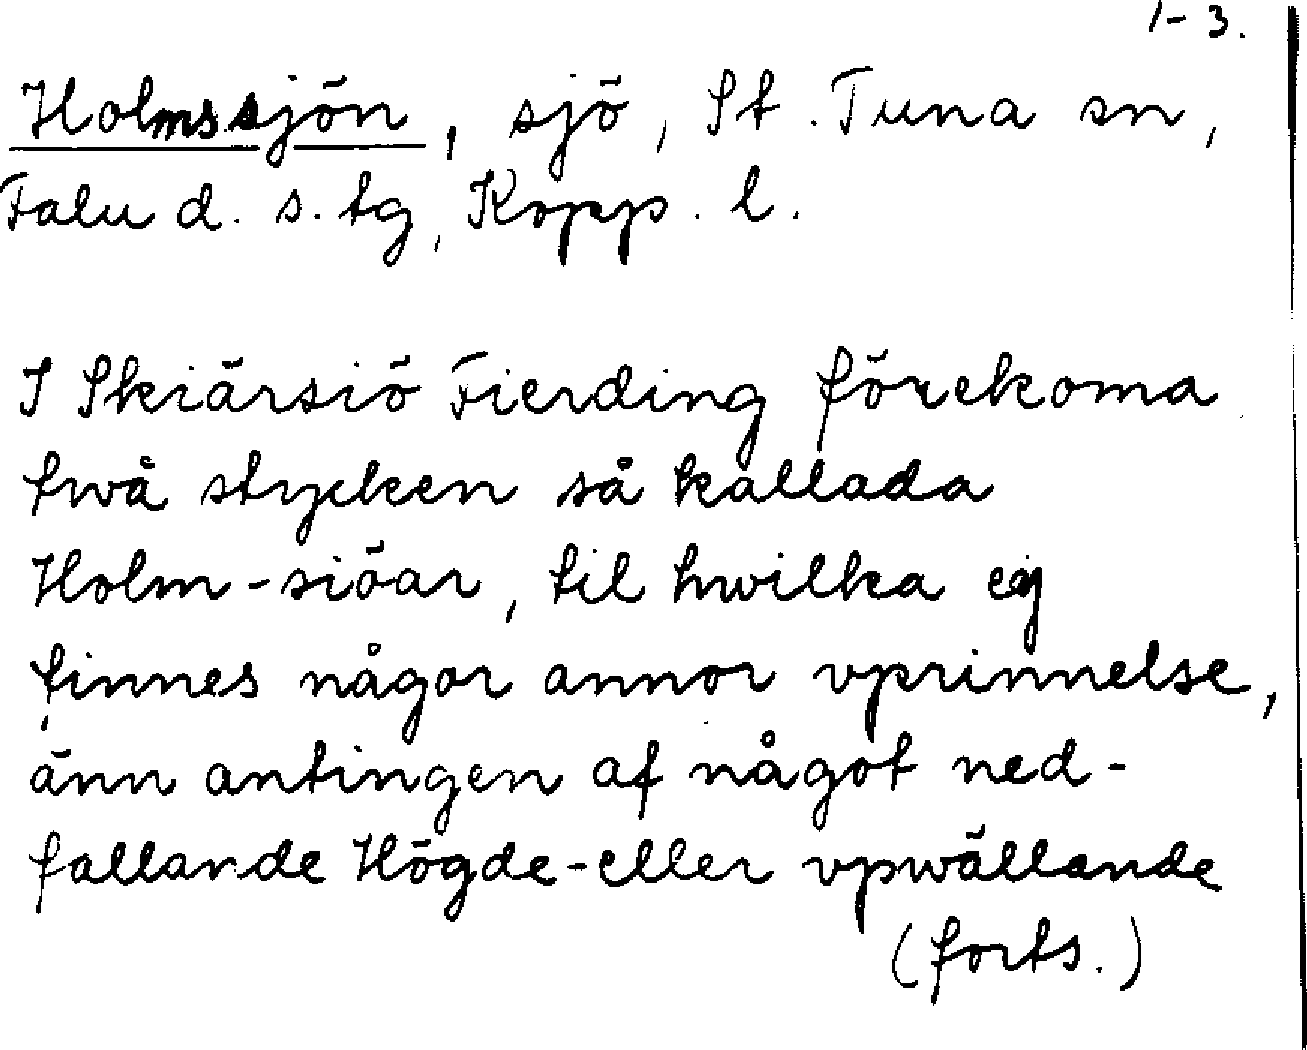 1-3.
Holmssjön, sjö, St. Tuna sn,
Falu d. s. tg, Kopp. l.
I Skiärsiö Fierding förekoma
twå stycken så kallada
Holm-siöar, til hwilka ej
finnes någor annor vprinnelse,
änn antingen af något ned-
fallande Högde-eller vpwällande
(forts.)